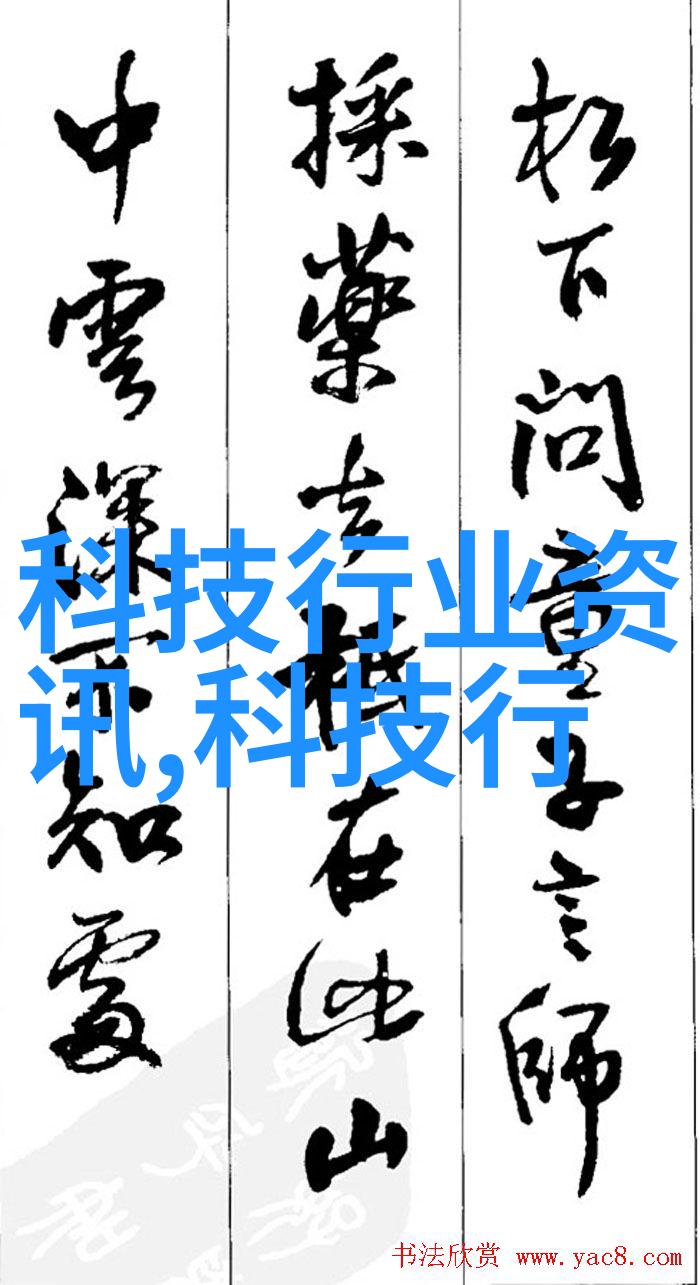 松下问童子言师
採藥去祇在此山
中雲深不知處
科技行业资
讯,科技行
书法欣赏 www.yac8.com